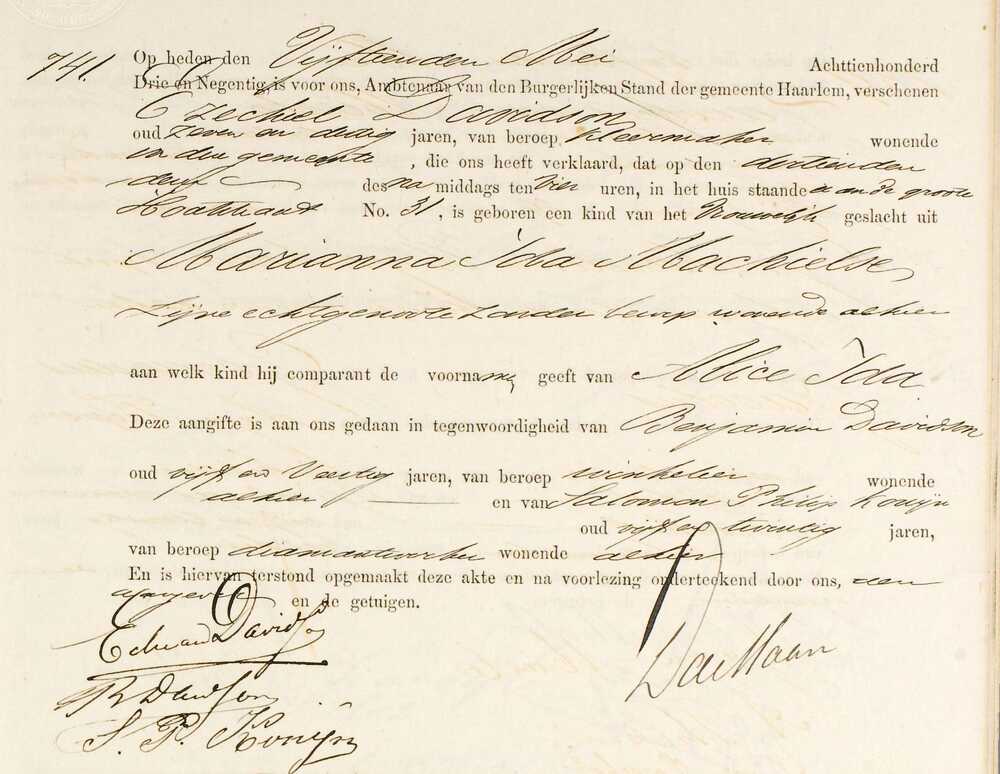 741.
Op heden den Vijftienden Mei Achttienhonderd
Drie en Negentig, is voor ons, Ambtenaar van den Burgerlijken Stand der gemeente Haarlem, verschenen
Ezechiel Davidson
oud zeven en dertig jaren, van beroep kleermaker wonende
in den gemeente, die ons heeft verklaard, dat op den dertienden
dezer des na middags ten vier uren, in het huis staande in an de groote
Houtstraat No. 31, is geboren een kind van het Vrouwelijk geslacht uit
Marianna Ida Machielse
Zijne echtgenoote zonder beroep wonende alhier
aan welk kind hij comparant de voorname geeft van Alice Ida
Deze aangifte is aan ons gedaan in tegenwoordigheid van Benjamin Davidson
oud vijf en Veertig jaren, van beroep winkelier wonende
alhier en van Salomon Philip Konijn
oud vijf en twintig jaren,
van beroep diamantwerker wonende alhier
En is hiervan terstond opgemaakt deze akte en na voorlezing onderteekend door ons, den
aangever en de getuigen.
Davidson
B Davidson
S. P. Konijn